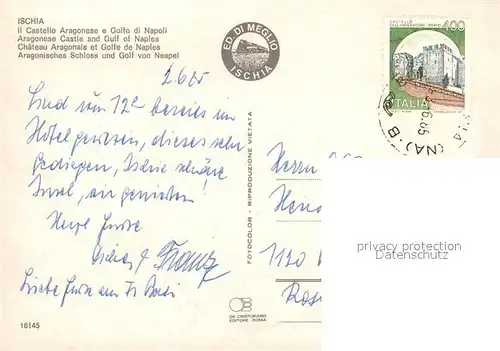 ISCHIA
Il Castello Aragonese e Golfo di Napoli
Aragonese Castle and Gulf of Naples
Château Aragonais et Golfe de Naples
Aragonisches Schloss und Golf von Neapel
ED. DI MEGLIO
ISCHIA
CASTELLO DELL'IMPERATORE - PRATO
400
ITALIA
(NA)
2.6.85
Sind um 12h bereits im
Hotel gewesen, dieses sehr
gediegen, Ischia schöne
Insel, wir genießen!
Herzl. Grüße
Franz
Liebe Grüße
Herrn
1120
FOTOCOLOR - RIPRODUZIONE VIETATA
privacy protection
Datenschutz
DE CRISTOFARO
EDITORE - ROMA
16145